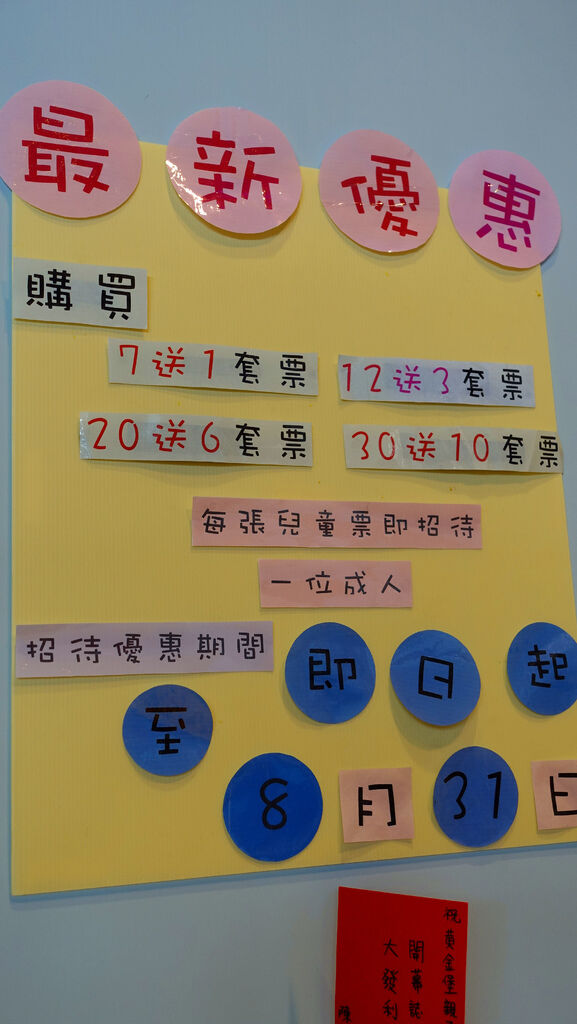 最新優惠
購買
7送1套票 12送3套票
20送6套票 30送10套票
每張兒童票即招待
一位成人
招待優惠期間 即日起
至
8月31日
祝黃金堡親
開幕誌
大發利
陳